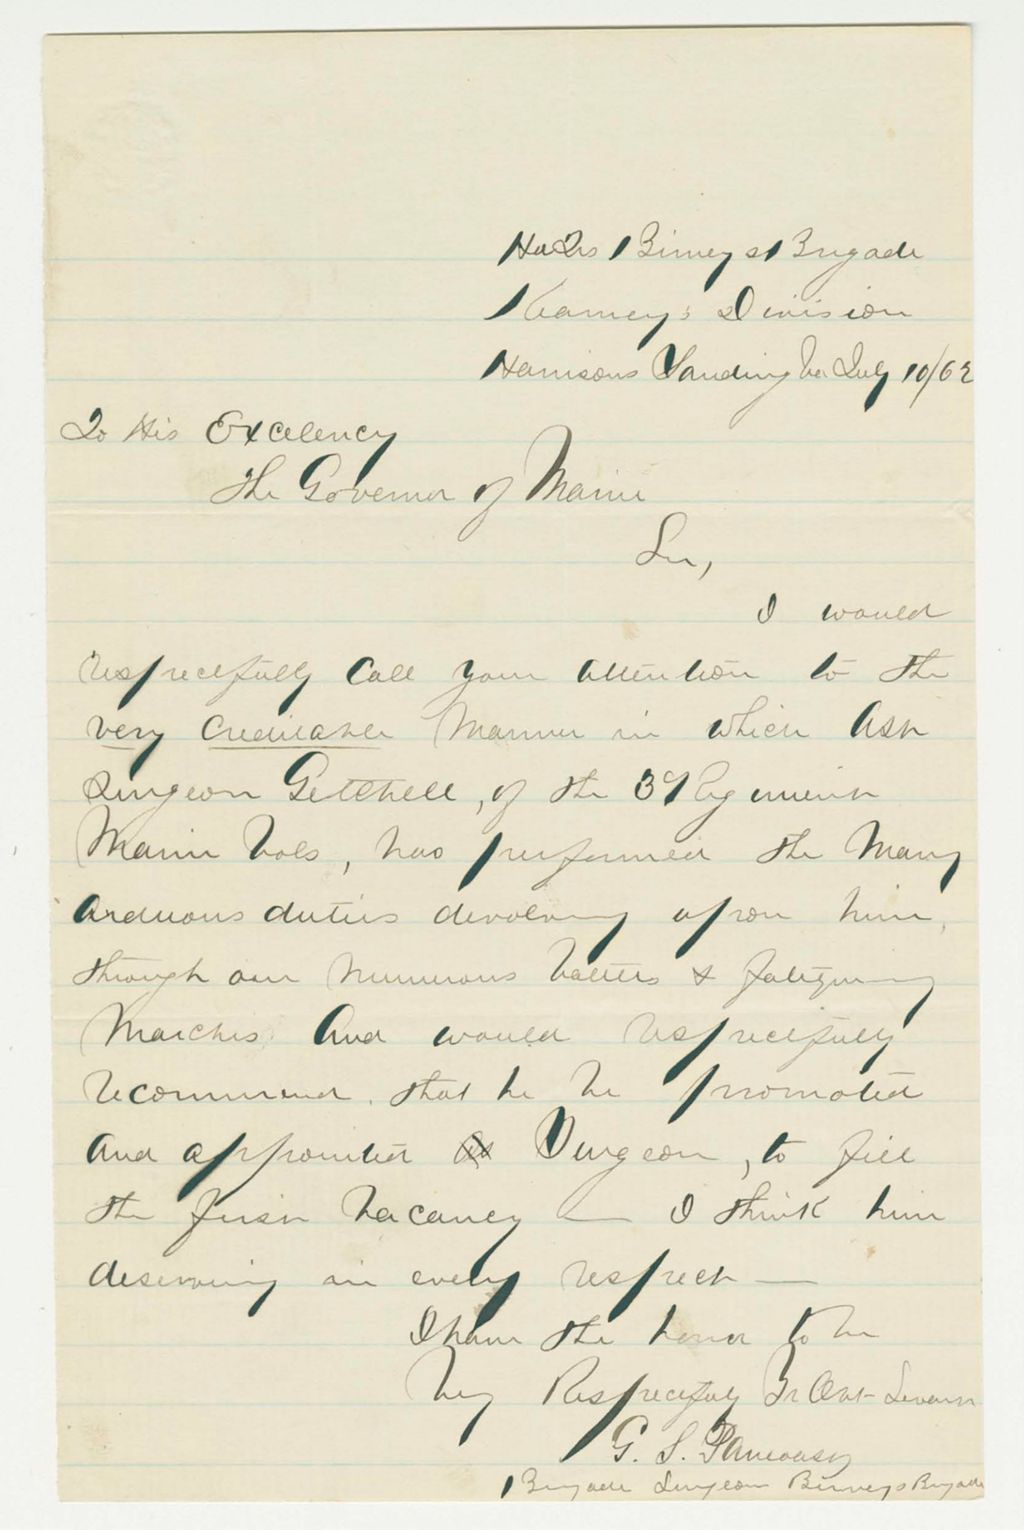 Hd Qrs Birney's Brigade
Kearney's Division
Harrisons Landing Va July 10/62
To His Excelency
The Governor of Maine
Sir,
I would
respectfully Call your attention to the
very Creditable Manner in which Asst
Surgeon Getchell, of the 3d Regiment
Maine Vols, has performed the Many
Arduous duties devolving upon him,
through our Numerous battles & fatiguing
Marches, And would respectfully
recommend, that he be promoted
And appointed as Surgeon, to fill
the first Vacancy — I think him
deserving in every respect —
I have the honor to be
Very Respectfuly Yr Obt Servant
G. S.
Brigade Surgeon Birney's Brigade